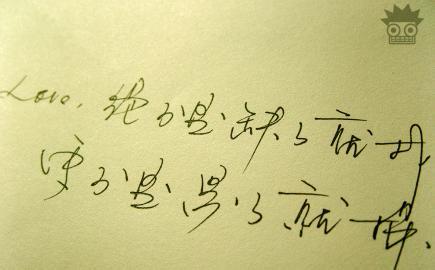 Love, 绝不是缺了就找
更不是累了就换.